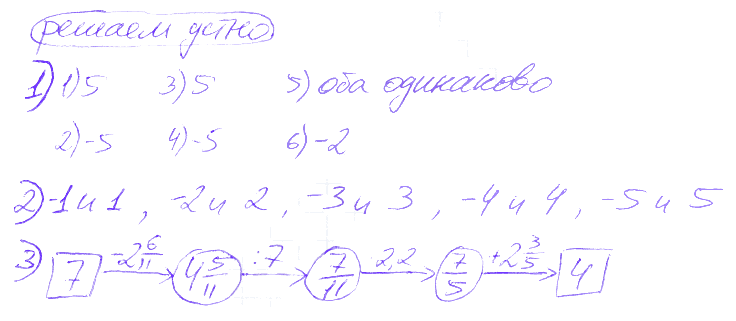 решаем устно
1) 1) 5 3) 5 5) оба одинаково
2) -5 4) -5 6) -2
2) -1 и 1, -2 и 2, -3 и 3, -4 и 4, -5 и 5
3) 7 -2 6/11 → 4 5/11 :7 → 7/11 2,2 → 7/5 +2 3/5 → 4